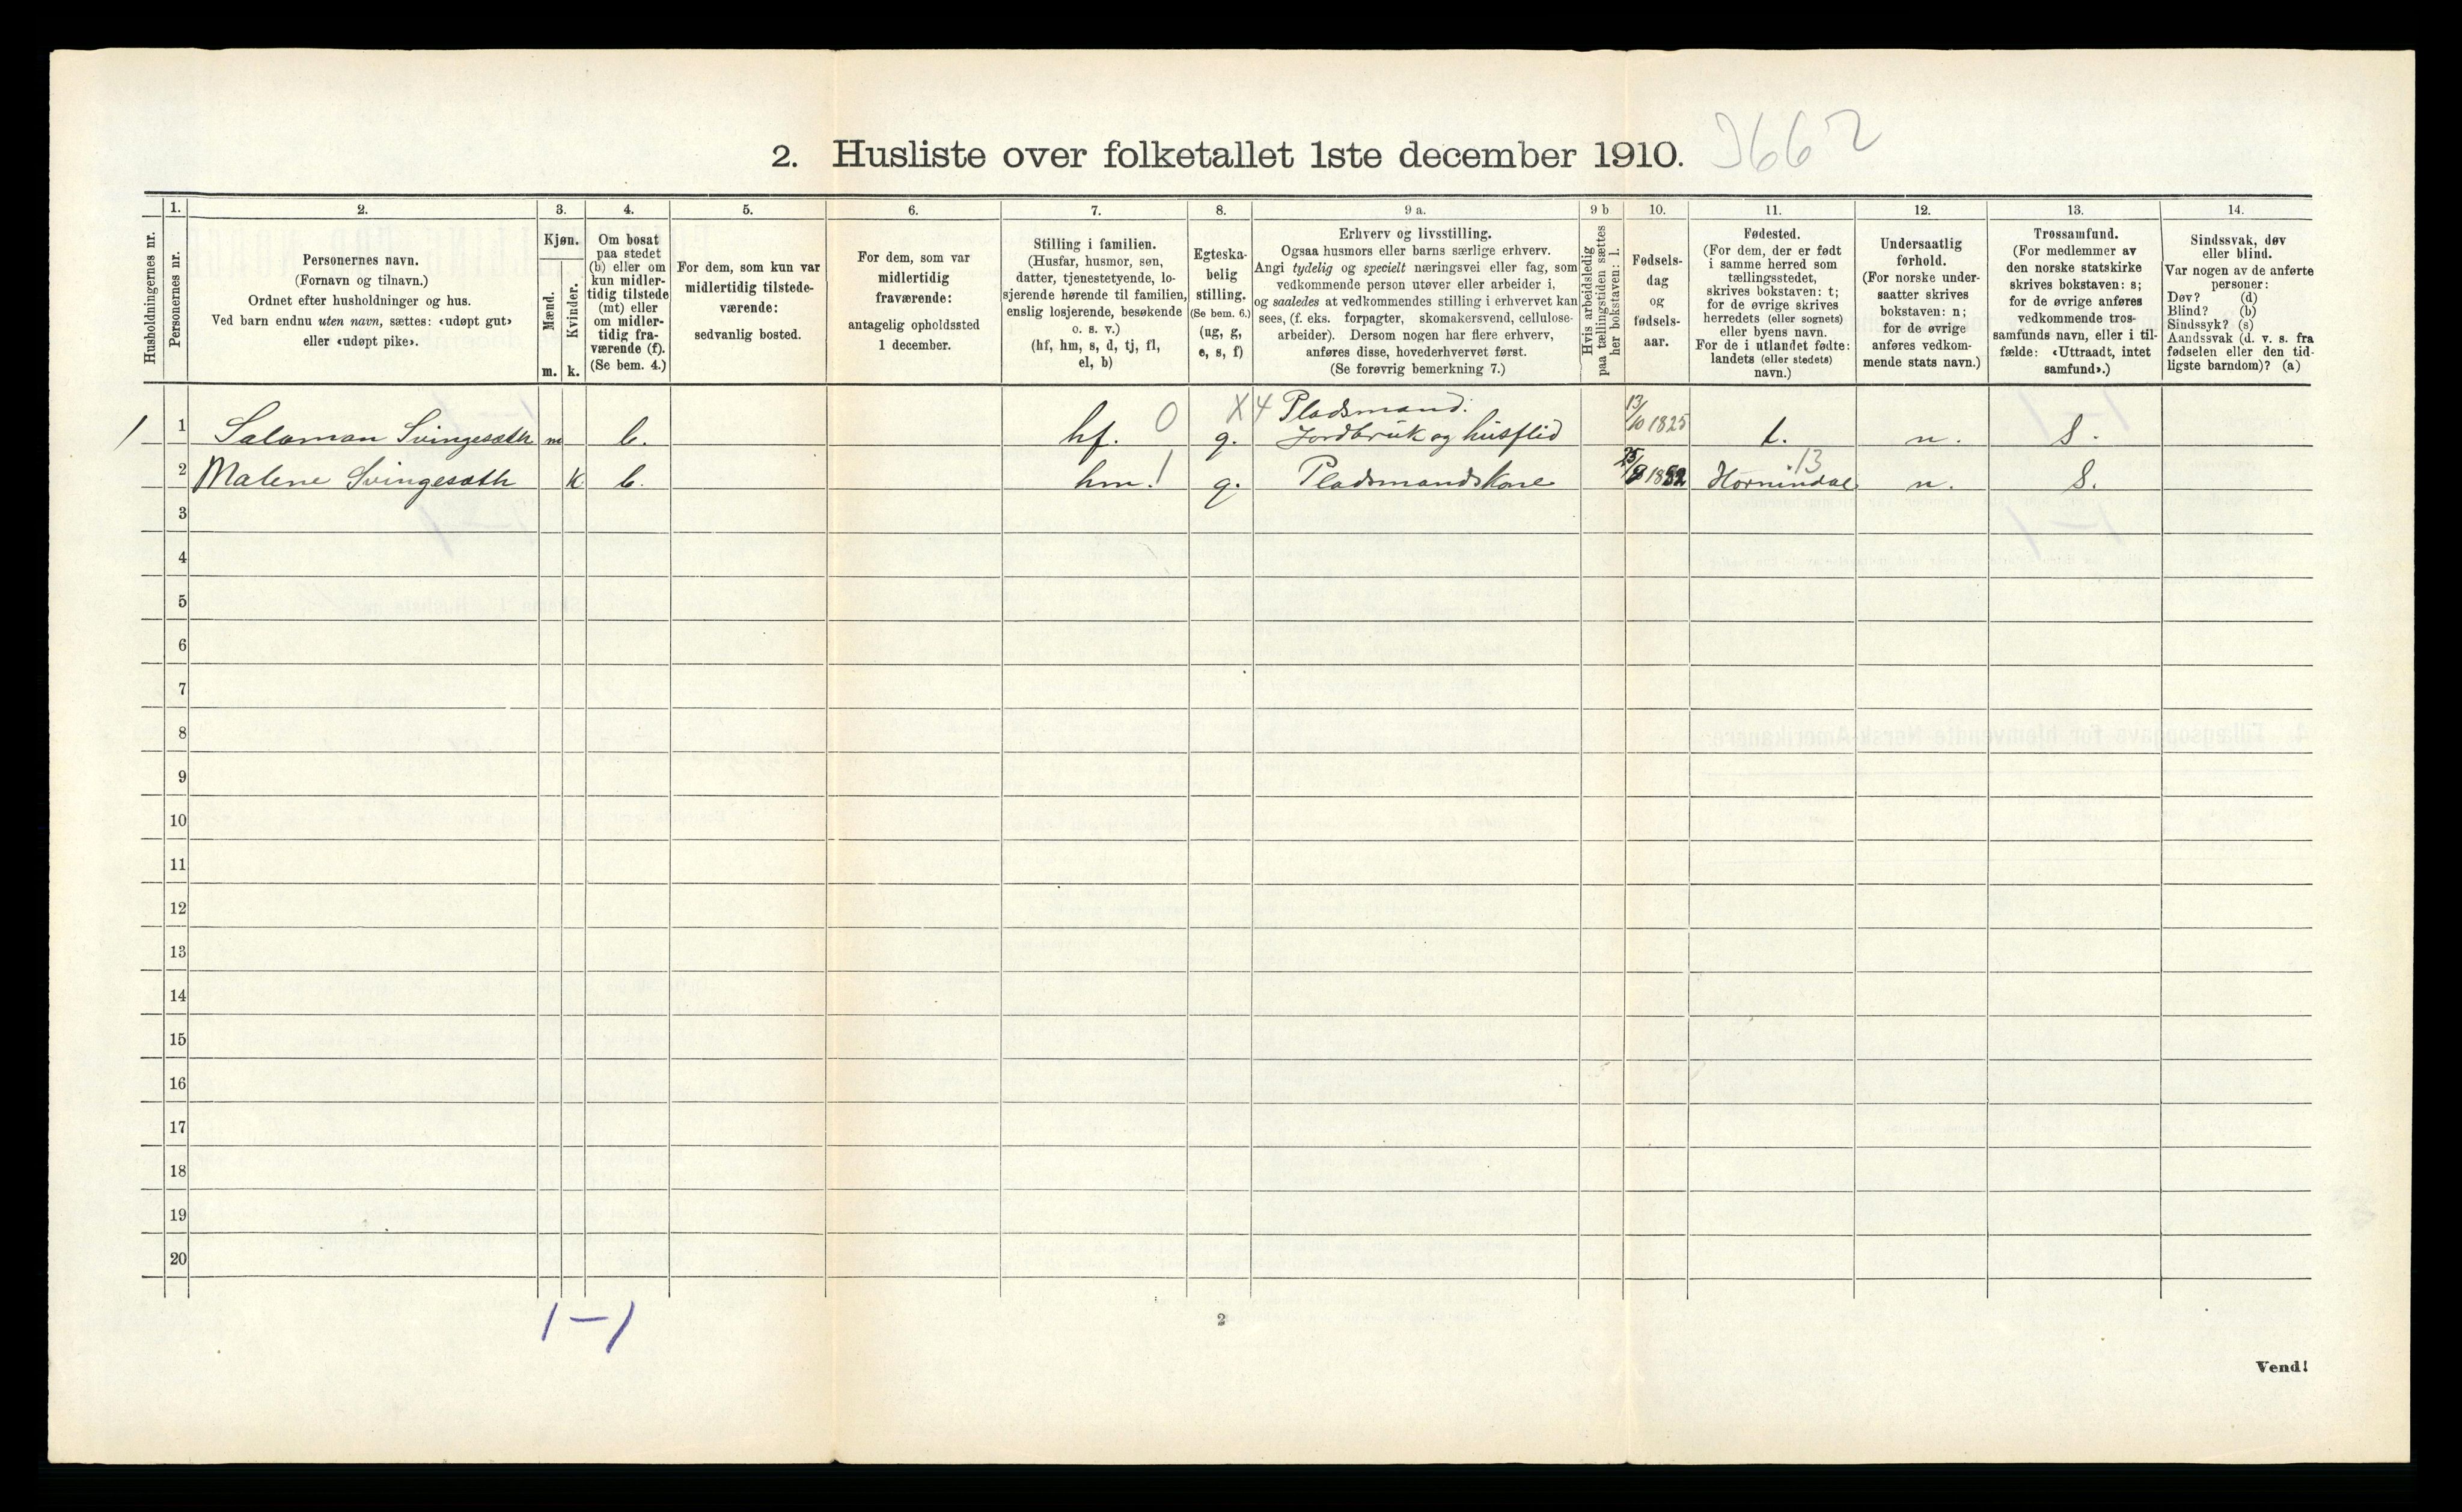 2. Husliste over folketallet 1ste december 1910. 3662
Husholdningernes nr.
1.
Personernes nr.
2.
Personernes navn.
(Fornavn og tilnavn.)
Ordnet efter husholdninger og hus.
Ved barn endnu uten navn, sættes: «udøpt gut»
eller «udøpt pike».
3.
Kjøn.
Mænd.
m.
Kvinder.
k.
4.
Om bosat
paa stedet
(b) eller om
kun midler-
tidig tilstede
(mt) eller
om midler-
tidig fra-
værende (f).
(Se bem. 4.)
5.
For dem, som kun var
midlertidig tilstede-
værende:
sedvanlig bosted.
6.
For dem, som var
midlertidig
fraværende:
antagelig opholdssted
1 december.
7.
Stilling i familien.
(Husfar, husmor, søn,
datter, tjenestetyende, lo-
sjerende hørende til familien,
enslig losjerende, besøkende
o. s. v.)
(hf, hm, s, d, tj, fl,
el, b)
8.
Egteska-
belig
stilling.
(Se bem. 6.)
(ug, g,
e, s, f)
9 a.
Erhverv og livsstilling.
Ogsaa husmors eller barns særlige erhverv.
Angi tydelig og specielt næringsvei eller fag, som
vedkommende person utøver eller arbeider i,
og saaledes at vedkommendes stilling i erhvervet kan
sees, (f. eks. forpagter, skomakersvend, cellulose-
arbeider). Dersom nogen har flere erhverv,
anføres disse, hovederhvervet først.
(Se forøvrig bemerkning 7.)
9 b
Hvis arbeidsledig
paa tællingstiden sættes
her bokstaven: l.
10.
Fødsels-
dag
og
fødsels-
aar.
11.
Fødested.
(For dem, der er født
i samme herred som
tællingsstedet,
skrives bokstaven: t;
for de øvrige skrives
herredets (eller sognets)
eller byens navn.
For de i utlandet fødte:
landets (eller stedets)
navn.)
12.
Undersaatlig
forhold.
(For norske under-
saatter skrives
bokstaven: n;
for de øvrige
anføres vedkom-
mende stats navn.)
13.
Trossamfund.
(For medlemmer av
den norske statskirke
skrives bokstaven: s;
for de øvrige anføres
vedkommende tros-
samfunds navn, eller i til-
fælde: «Uttraadt, intet
samfund».)
14.
Sindssvak, døv
eller blind.
Var nogen av de anførte
personer:
Døv? (d)
Blind? (b)
Sindssyk? (s)
Aandssvak (d. v. s. fra
fødselen eller den tid-
ligste barndom)? (a)
X4 Pladsmand.
1 1 Salaman Svingesæth m b. hf. 0 g. Jordbruk og husflid 13/10 1825 t. n. S.
2 Malene Svingesæth K b. hm. 1 g. Pladsmandskone 1852 Hornindal 13 n. S.
3
4
5
6
7
8
9
10
11
12
13
14
15
16
17
18
19
20
1 — 1
2
Vend!